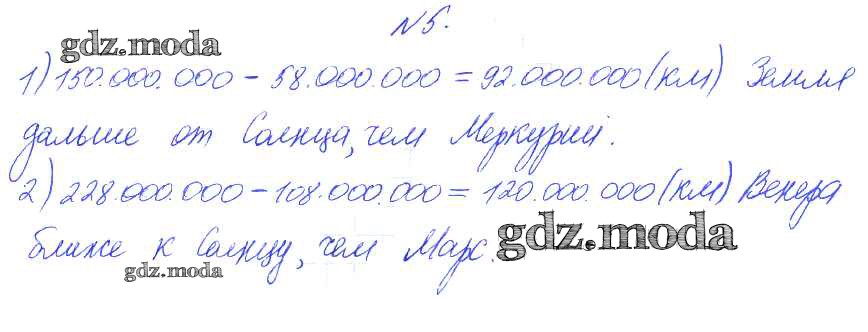 №5.
gdz.moda
1) 150.000.000 - 58.000.000 = 92.000.000 (км) Земля
дальше от Солнца, чем Меркурий.
2) 228.000.000 - 108.000.000 = 120.000.000 (км) Венера
ближе к Солнцу, чем Марс.
gdz.moda
gdz.moda